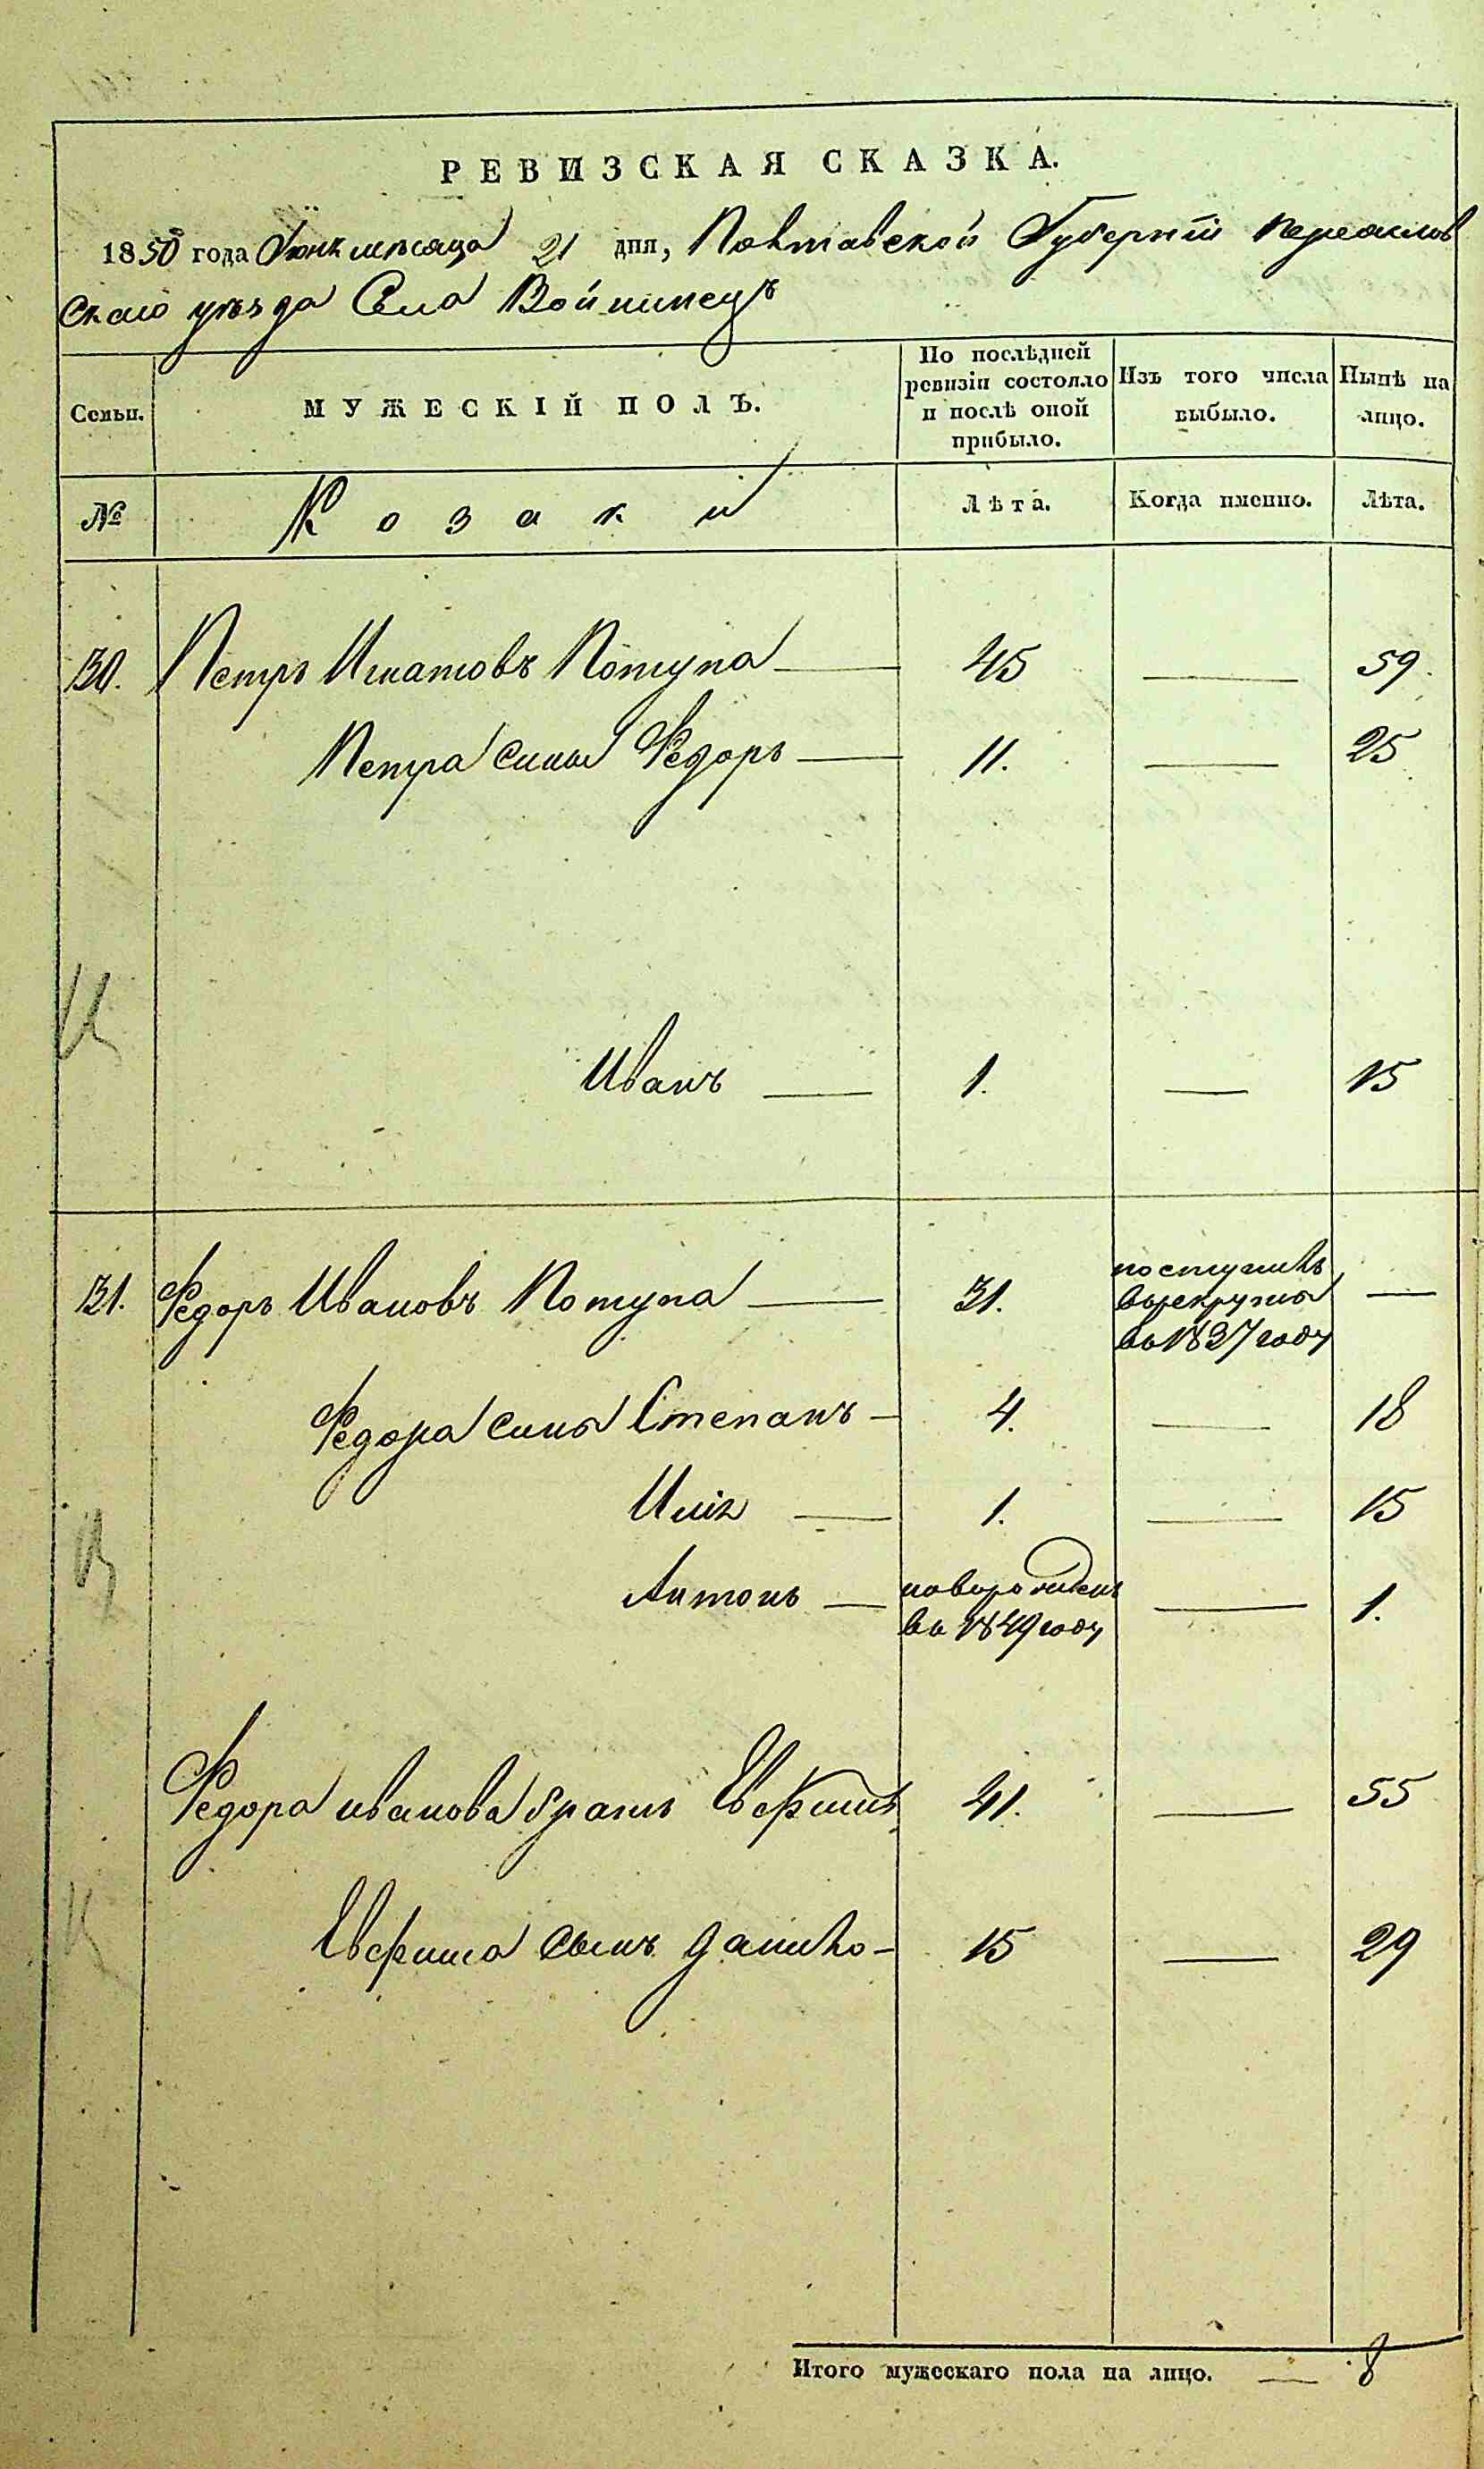 РЕВИЗСКАЯ СКАЗКА.
1850 года Июня месяца 21 дня, Полтавской Губернїи Переяслов
Скаго уѣзда Села Войнинецъ
Семьи. МУЖЕСКІЙ ПОЛЪ. По послѣдней ревизіи состояло и послѣ оной прибыло. Изъ того числа выбыло. Нынѣ на лицо.
№ Козаки Лѣта. Когда именно. Лѣта.
30. Петръ Игнатовъ Потупа — 45 — 59.
Петра сины Федоръ — 11. — 25
Иванъ — 1. — 15
31. Федоръ Ивановъ Потупа — 31. поступилъ
врекруты —
во 1837 году
Федора сины Степанъ — 4. — 18
Илія — 1. — 15
Антонъ — новорожденъ — 1.
во 1849 году
Федора иванова братъ Евфимъ 41. — 55
Евфима сынъ Данило — 15 — 29
Итого мужескаго пола на лицо. — 8